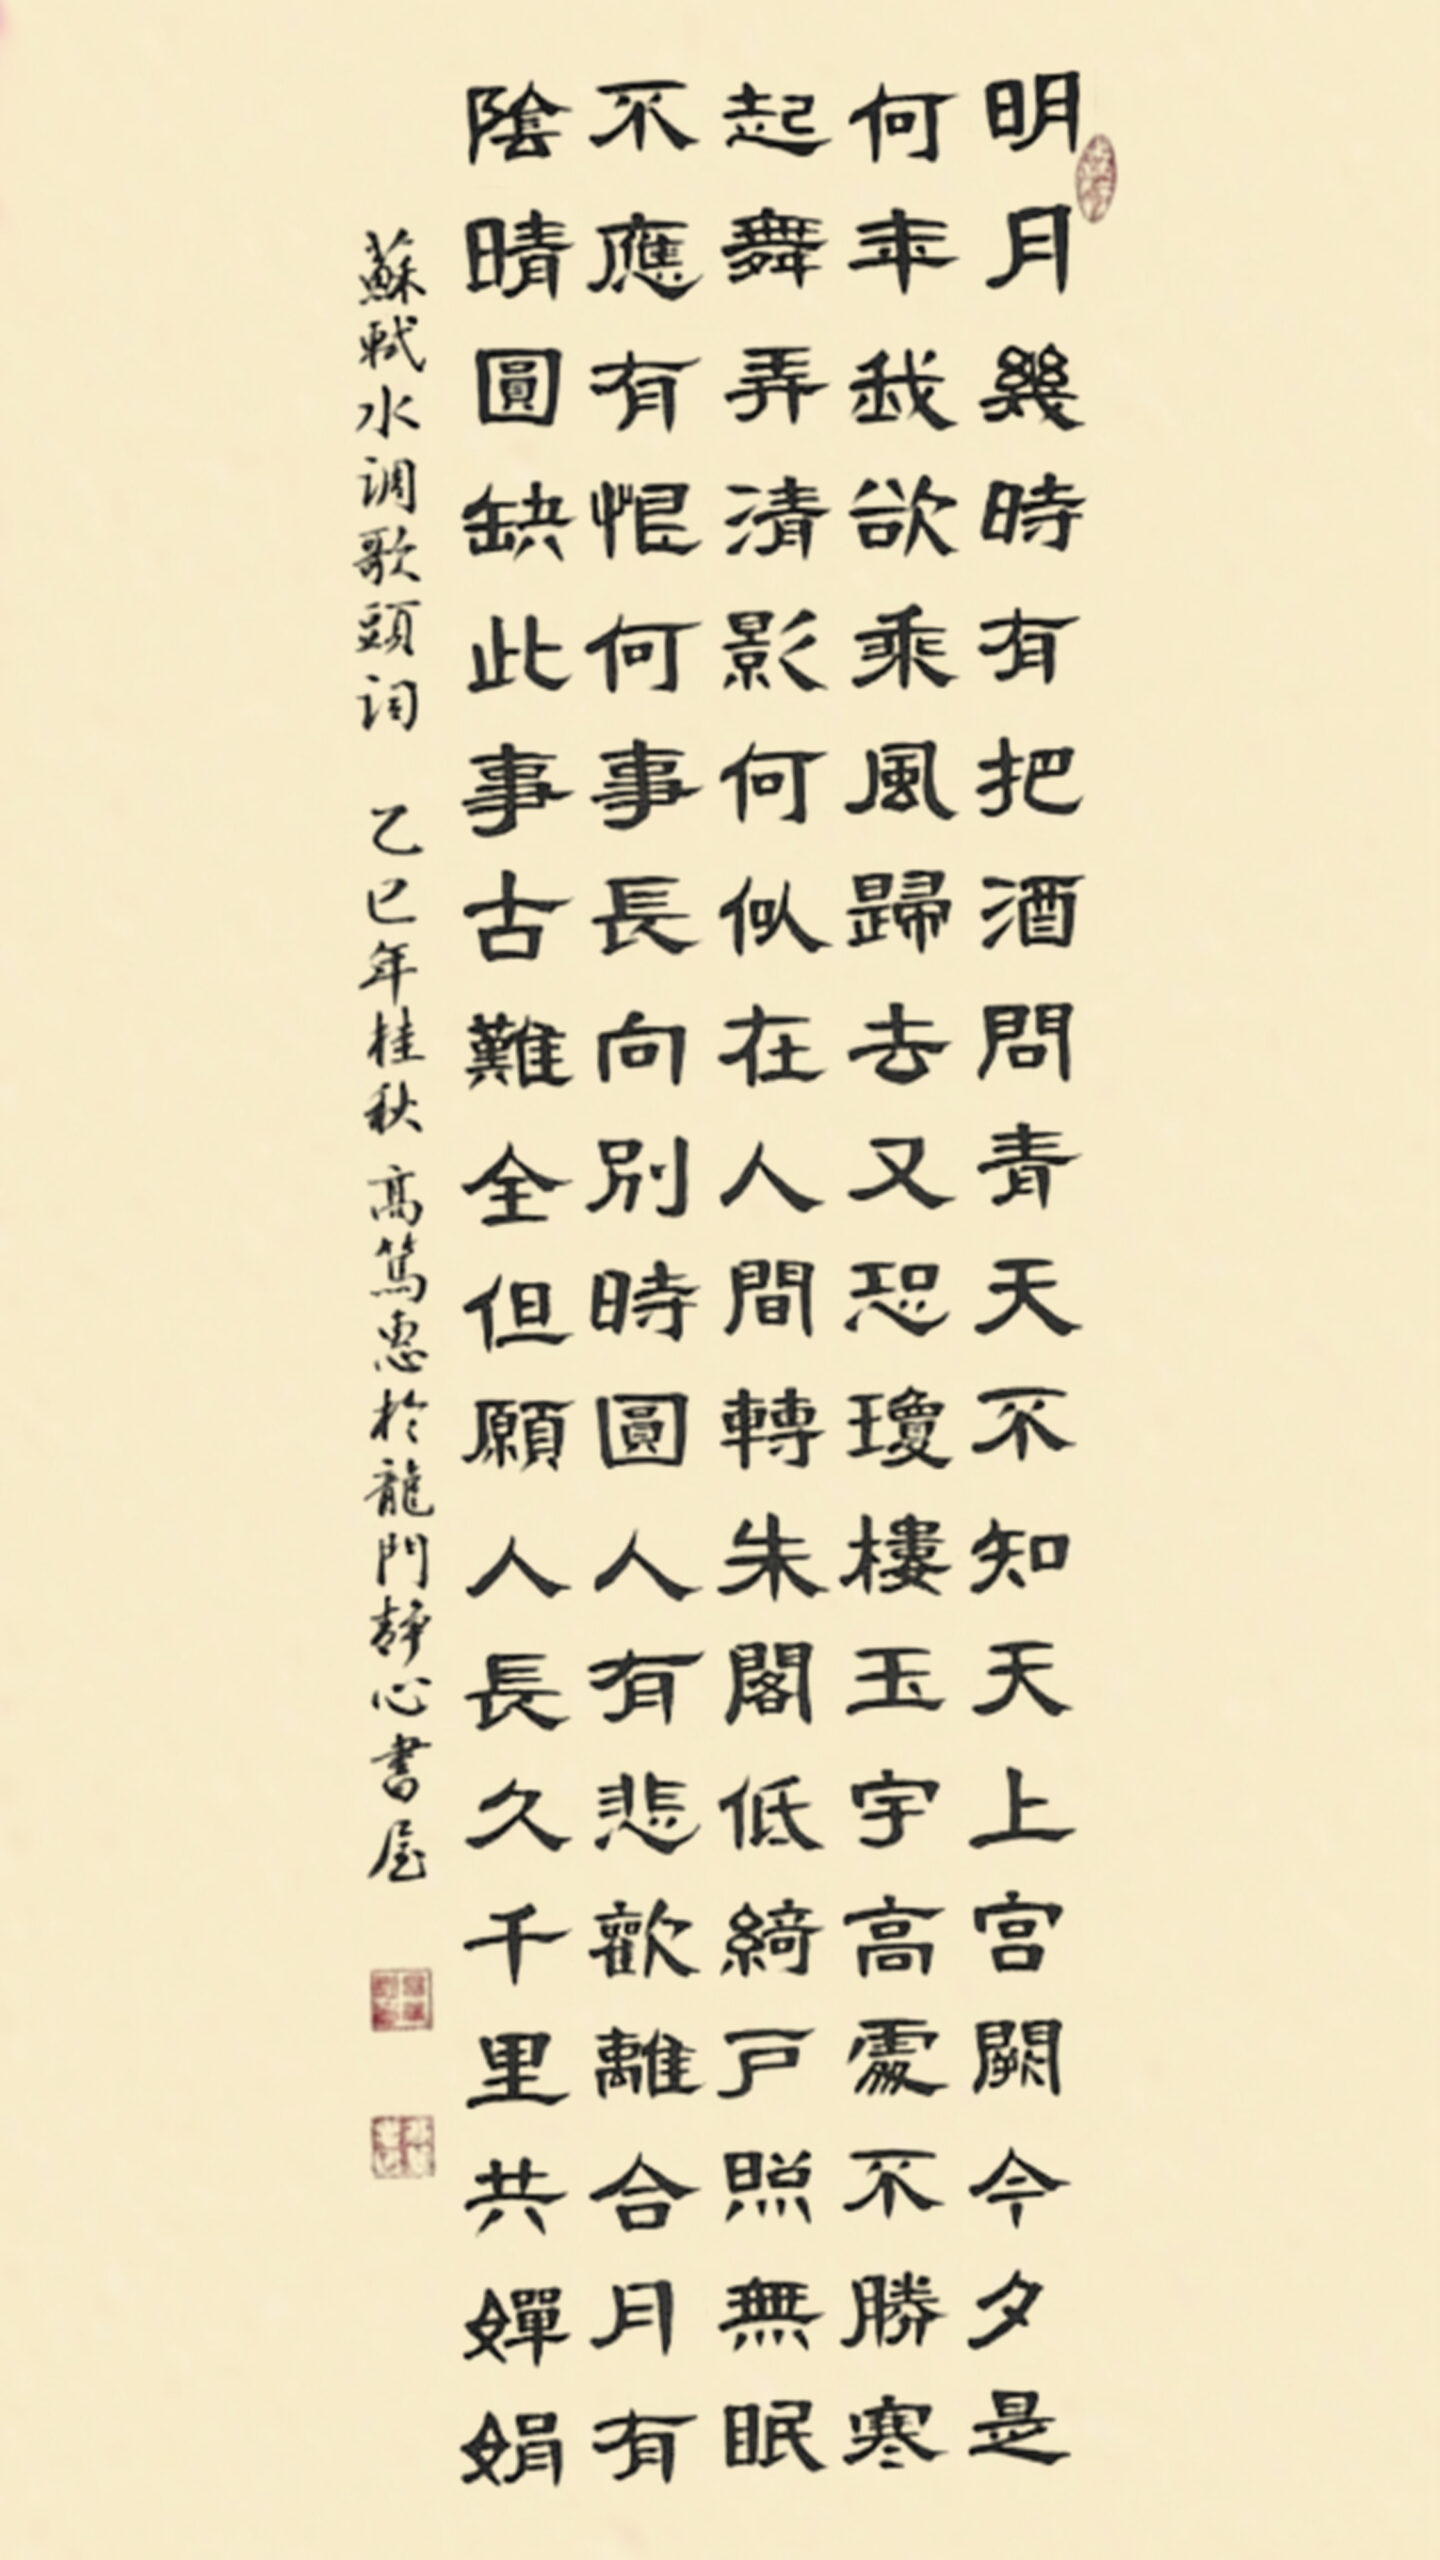 明月幾時有把酒問青天不知天上宮闕今夕是
何年我欲乘風歸去又恐瓊樓玉宇高處不勝寒
起舞弄清影何似在人間轉朱閣低綺戶照無眠
不應有恨何事長向別時圓人有悲歡離合月有
陰晴圓缺此事古難全但願人長久千里共嬋娟
蘇軾水调歌頭词 乙巳年桂秋 高篤惠於龍門靜心書屋